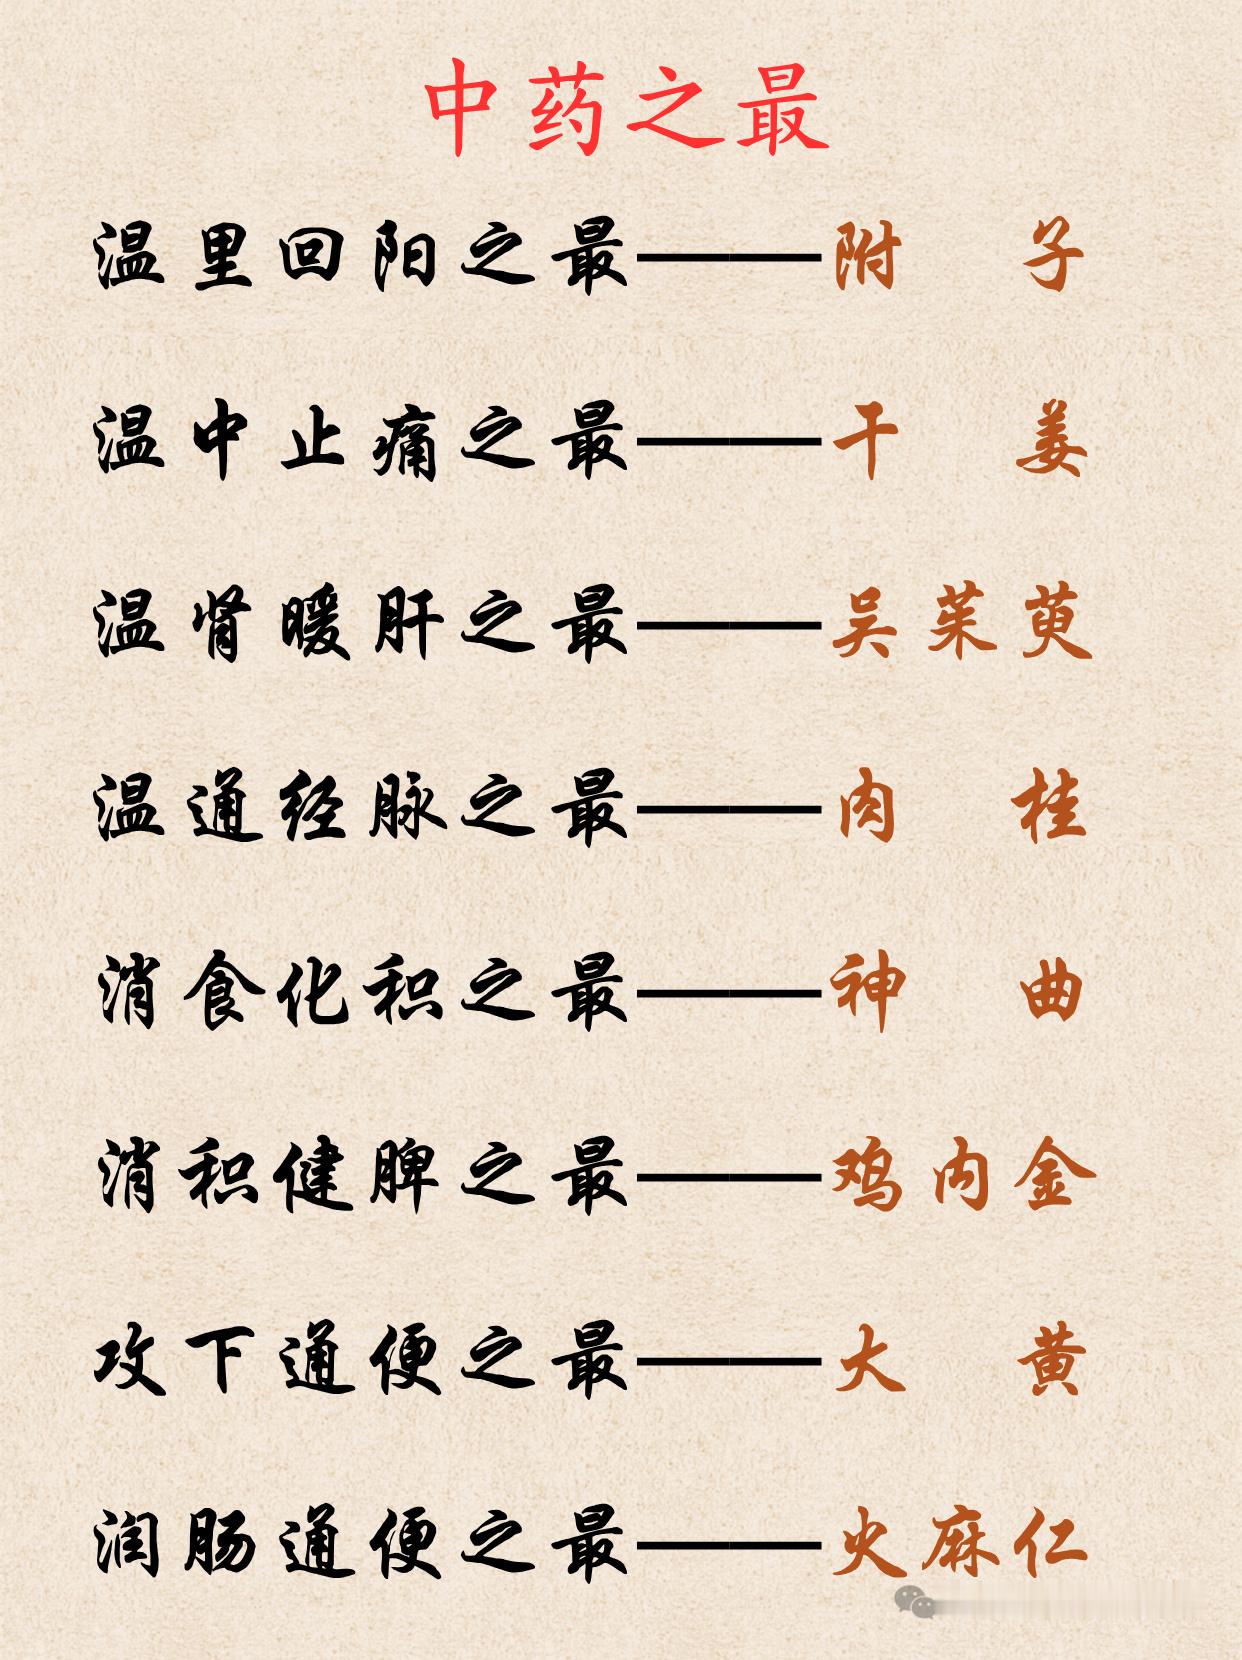 中药之最
温里回阳之最——附子
温中止痛之最——干姜
温肾暖肝之最——吴茱萸
温通经脉之最——肉桂
消食化积之最——神曲
消积健脾之最——鸡内金
攻下通便之最——大黄
润肠通便之最——火麻仁